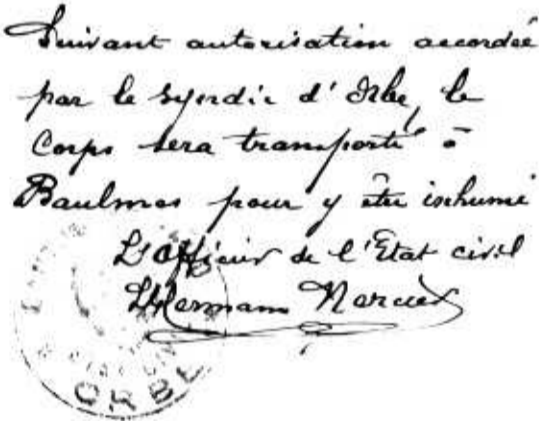 Suivant autorisation accordée
par le syndic d'Orbe, le
Corps sera transporté à
Baulmes pour y être inhumé
L'Officier de l'Etat civil
Hermann
ORBE